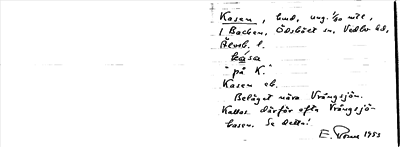 Kasen, lmd, ung. 1/90 mtl,
i Backen, Ödsböct sn, Vedbo hd,
Älvsb. l.
kása
"på K."
Kasen eb.
Beläget nära Vrångsjön.
Kallas därför ofta Vrångsjö-
kasen. Se detta!
E. 1953